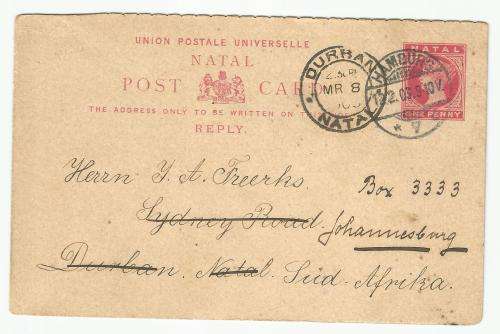 UNION POSTALE UNIVERSELLE
NATAL
POST CARD
THE ADDRESS ONLY TO BE WRITTEN ON TH
REPLY.
DURBAN
MR 8
NATAL
HAMBURG
NATAL
ONE PENNY
Herrn Y. A. Freerks
Box 3333
Sydney Road
Johannesburg
Durban. Natal. Süd-Afrika.